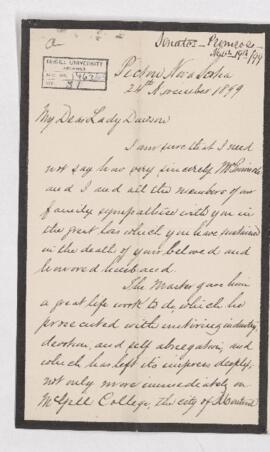 Senator Primrose
McGILL UNIVERSITY
ARCHIVES
ACC. NO.
REF. 31
Pictou Nova Scotia
24th November 1899
My Dear Lady Dawson
I am sure that I need
not say how very sincerely Mrs Primrose
and I and all the members of our
family sympathise with you in
the great loss which you have sustained
in the death of your beloved and
honored husband.
The Master gave him
a great life work to do, which he
prosecuted with untiring industry,
devotion, and self abnegation, and
which has left its impress deeply,
not only more immediately on
McGill College, the city of Montreal